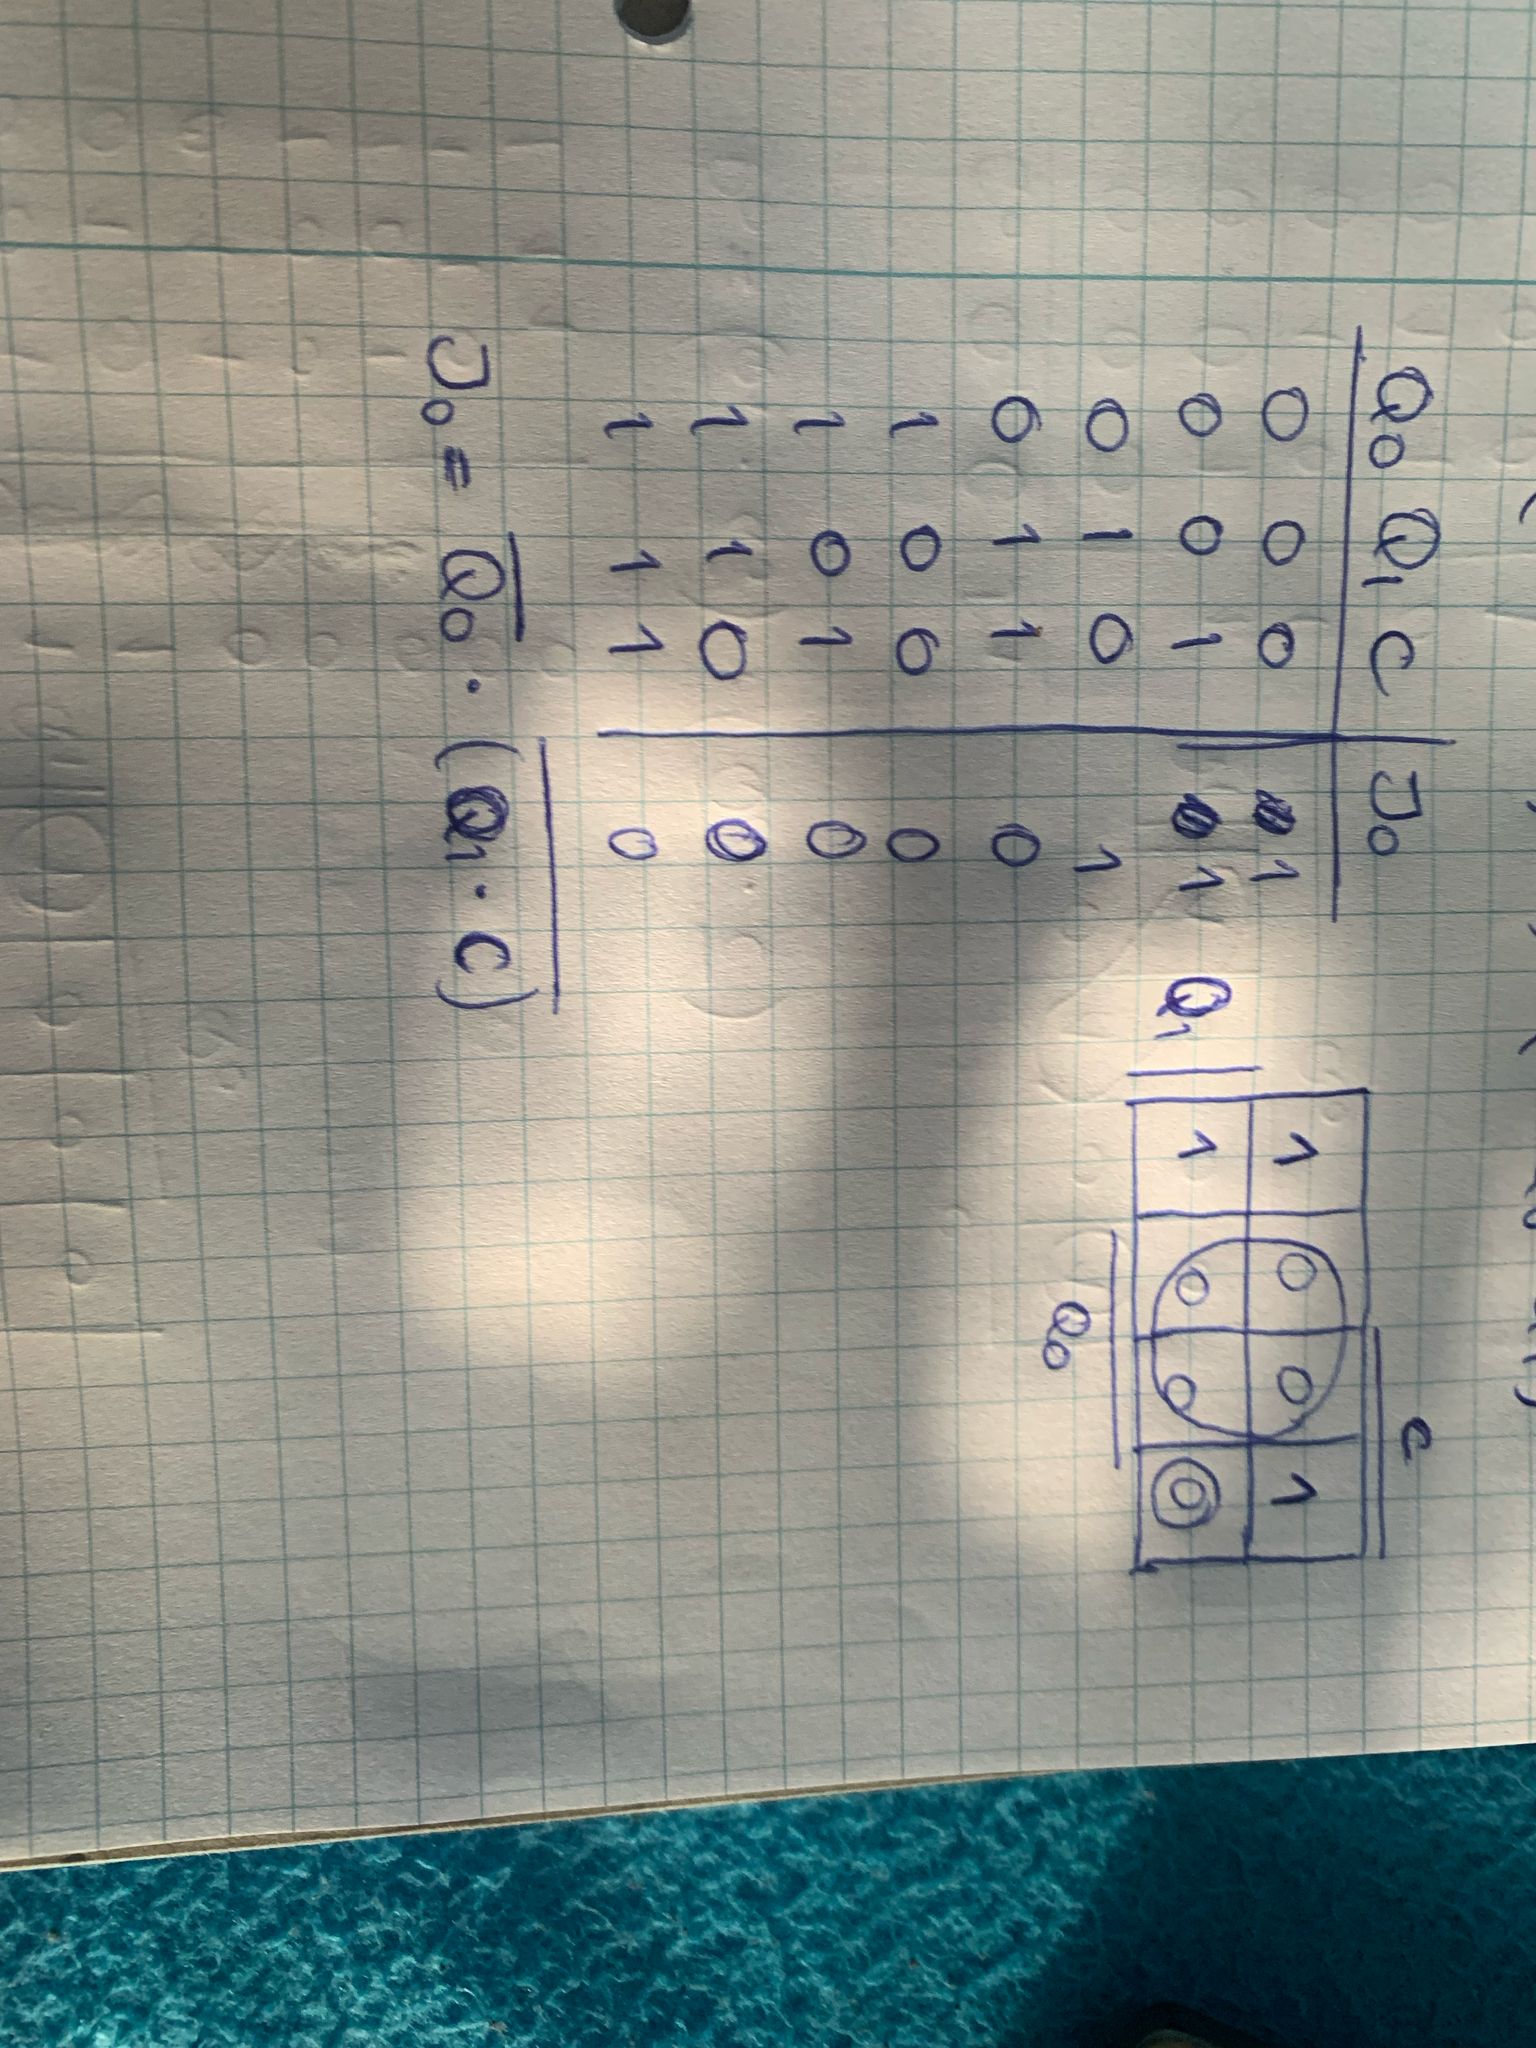 Q₀ Q₁ C J₀
0 0 0 1
0 0 1 1
0 1 0 1
0 1 1 0
1 0 0 0
1 0 1 0
1 1 0 0
1 1 1 0
J₀ = Q̅₀ · (Q₁ · C)̅
C
1 0 0 1
Q₁ 1 0 0 0
Q₀